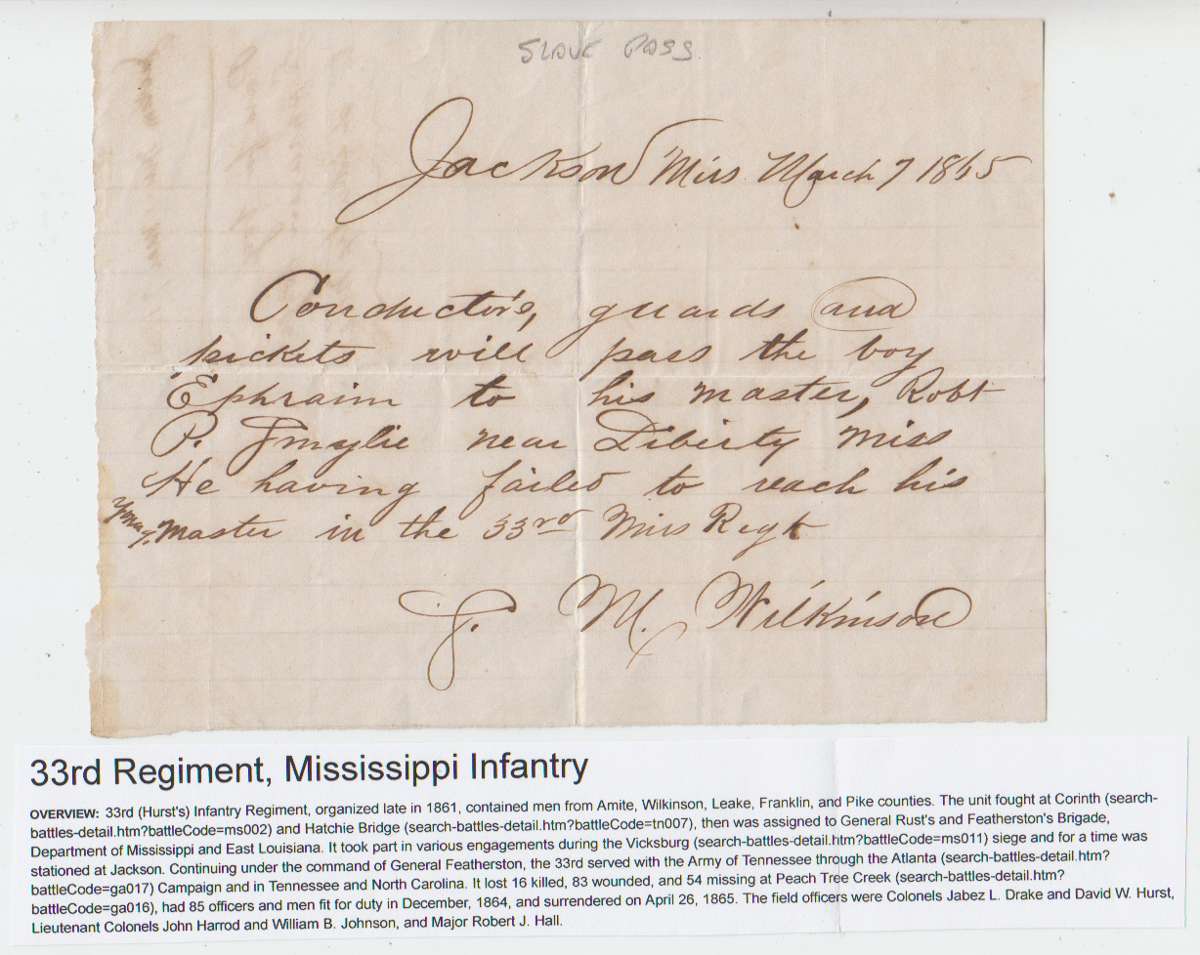 SLAVE PASS.
Jackson Miss. March 7 1865
Conductors, guards and
pickets will pass the boy
Ephraim to his master, Robt
P. Smylie near Liberty Miss
He having failed to reach his
young Master in the 33rd Miss Regt
J. M. Wilkinson
33rd Regiment, Mississippi Infantry
OVERVIEW: 33rd (Hurst's) Infantry Regiment, organized late in 1861, contained men from Amite, Wilkinson, Leake, Franklin, and Pike counties. The unit fought at Corinth (search-
battles-detail.htm?battleCode=ms002) and Hatchie Bridge (search-battles-detail.htm?battleCode=tn007), then was assigned to General Rust's and Featherston's Brigade,
Department of Mississippi and East Louisiana. It took part in various engagements during the Vicksburg (search-battles-detail.htm?battleCode=ms011) siege and for a time was
stationed at Jackson. Continuing under the command of General Featherston, the 33rd served with the Army of Tennessee through the Atlanta (search-battles-detail.htm?
battleCode=ga017) Campaign and in Tennessee and North Carolina. It lost 16 killed, 83 wounded, and 54 missing at Peach Tree Creek (search-battles-detail.htm?
battleCode=ga016), had 85 officers and men fit for duty in December, 1864, and surrendered on April 26, 1865. The field officers were Colonels Jabez L. Drake and David W. Hurst,
Lieutenant Colonels John Harrod and William B. Johnson, and Major Robert J. Hall.